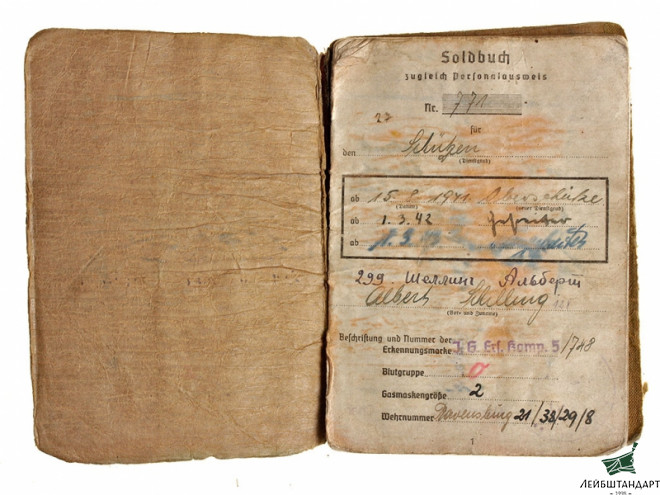 Soldbuch
zugleich Personalausweis
Nr. 77
23
für
den Schützen
(Dienstgrad)
ab 15. 8. 1941 Oberschütze
(Datum) (neuer Dienstgrad)
ab 1.3.42 Gefreiter
ab 1.3.43
299 Шеллинг Альберт
Albert Schilling
(Vor- und Zuname)
Beschriftung und Nummer der
Erkennungsmarke J. G. Ers. Komp. 5 /748
Blutgruppe O
Gasmaskengröße 2
Wehrnummer Ravensburg 21/38/29/8
1
ЛЕЙБШТАНДАРТ